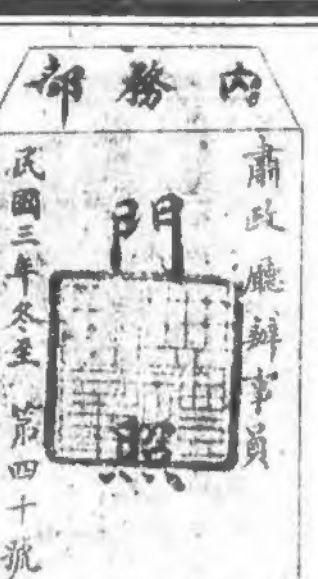 內務部
肅政廳辦事員
門照
民國三年冬至 第四十號